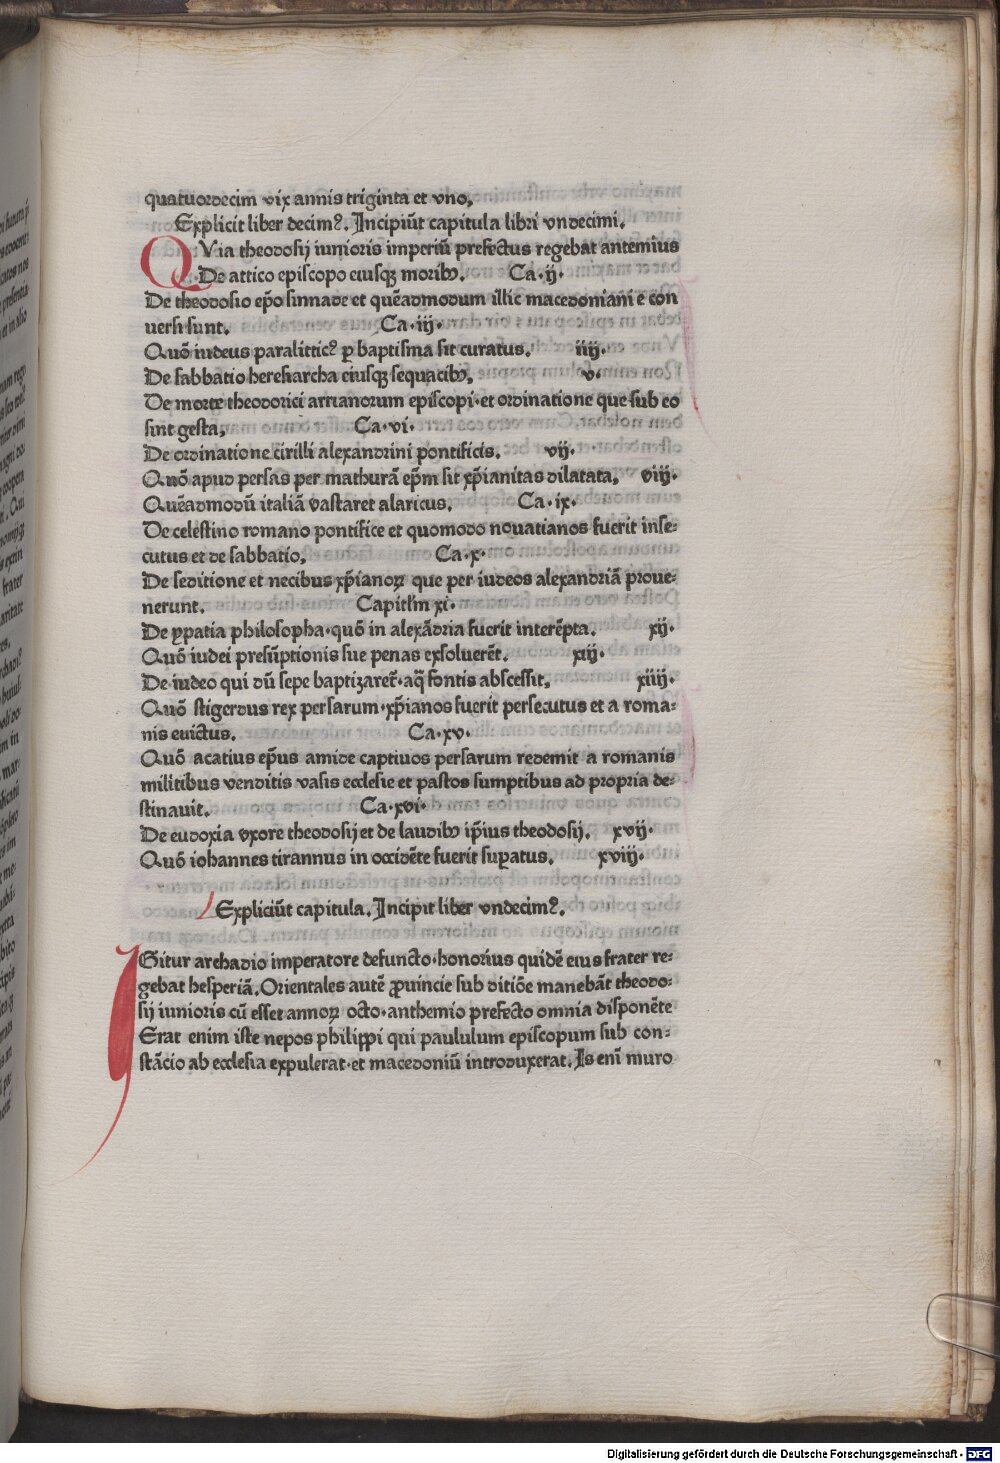 quatuordecim vix annis triginta et vno.
Explicit liber decimꝰ. Incipiūt capitula libri vndecimi.
QVia theodosij iunioris imperiū prefectus regebat antemius
De attico episcopo eiusqꝫ moribꝫ. Ca·ij·
De theodosio ep̄o sinnade et quēadmodum illic macedoniani e con
uersi sunt. Ca·iij·
Quō iudeus paralitticꝰ ꝑ baptisma sit curatus. iiij·
De sabbatio heresiarcha eiusqꝫ sequacibꝫ. v·
De morte theodorici arrianorum episcopi·et ordinatione que sub eo
sint gesta. Ca·vi·
De ordinatione cirilli alexandrini pontificis. vij·
Quō apud persas per mathurā ep̄m sit xp̄ianitas dilatata. viij·
Quēadmodū italiā vastaret alaricus. Ca·ix·
De celestino romano pontifice et quomodo nouatianos fuerit inse-
cutus et de sabbatio. Ca·x·
De seditione et necibus xp̄ianoꝝ que per iudeos alexandriā proue-
nerunt. Capitl̄m xi·
De ypatia philosopha·quō in alexādria fuerit interēpta. xij·
Quō iudei presūptionis sue penas exsoluerēt. xiij·
De iudeo qui dū sepe baptizaret̄·aq̄ fontis abscessit. xiiij·
Quō stigerdus rex persarum·xp̄ianos fuerit persecutus et a roma-
nis euictus. Ca·xv·
Quō acatius ep̄us amide captiuos persarum redemit a romanis
militibus venditis vasis ecclesie et pastos sumptibus ad propria de-
stinauit. Ca·xvi·
De eudoxia vxore theodosij et de laudibꝫ ip̄ius theodosij. xvij·
Quō iohannes tirannus in occidēte fuerit suꝑatus. xviij·
Expliciūt capitula. Incipit liber vndecimꝰ.
IGitur archadio imperatore defuncto·honorius quidē eius frater re-
gebat hesperiā. Orientales autē ꝓuincie sub ditiōe manebāt theodo-
sij iunioris cū esset annoꝝ octo·anthemio prefecto omnia disponēte
Erat enim iste nepos philippi qui paululum episcopum sub con-
stācio ab ecclesia expulerat·et macedoniū introduxerat. Is enī muro
Digitalisierung gefördert durch die Deutsche Forschungsgemeinschaft - DFG